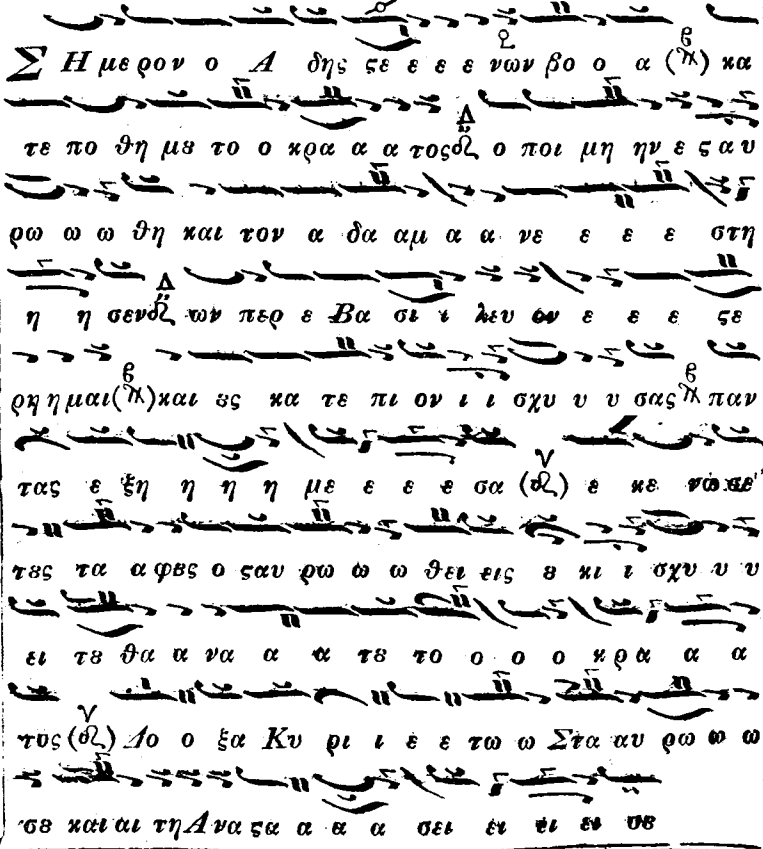 Σ Η με ρον ο Α δης ϛε ε ε ε νων βο ο α κα
τε πο θη με το ο κρα α α τος ο ποι μη ην ε ϛ αυ
ρω ω ω θη και τον α δα αμ α α νε ε ε ε στη
η η σεν ων περ ε Βα σι ι λευ ον ε ε ε ϛε
ρη η μαι και ȣς κα τε πι ον ι ι σχυ υ υ σας παν
τας ε ξη η η η με ε ε ε σα ε κε νω σε
τȣς τα α φȣς ο ϛαυ ρω ω ω θει εις ȣ κι ι σχυ υ υ
ει τȣ θα α να α α τȣ το ο ο ο κρ α α α
τος Δο ο ξα Κυ ρι ι ε ε τω ω Στα αυ ρω ω ω
σȣ και αι τη Α να ϛα α α α σει ει ει ει σȣ